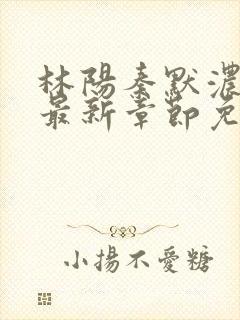 林陽秦默濃
最新章節免
小揚不愛糖